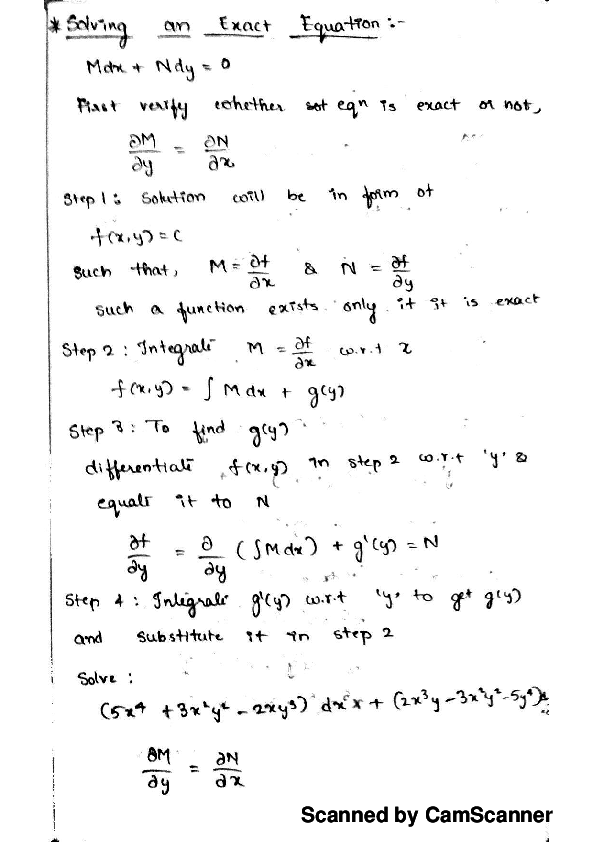 * Solving an Exact Equation :-
Mdx + Ndy = 0
First verify whether eqn is exact or not,
∂M/∂y = ∂N/∂x
Step 1 : Solution will be in form of
f(x,y) = C
such that, M = ∂f/∂x & N = ∂f/∂y
such a function exists only if it is exact
Step 2 : Integrate M = ∂f/∂x w.r.t x
f(x,y) = ∫ M dx + g(y)
Step 3 : To find g(y)
differentiate f(x,y) in step 2 w.r.t 'y' &
equate it to N
∂f/∂y = ∂/∂y (∫Mdx) + g'(y) = N
Step 4 : Integrate g'(y) w.r.t 'y' to get g(y)
and substitute it in step 2
Solve :
(5x⁴ + 3x²y² - 2xy³) dx + (2x³y - 3x²y² - 5y⁴)
∂M/∂y = ∂N/∂x
Scanned by CamScanner